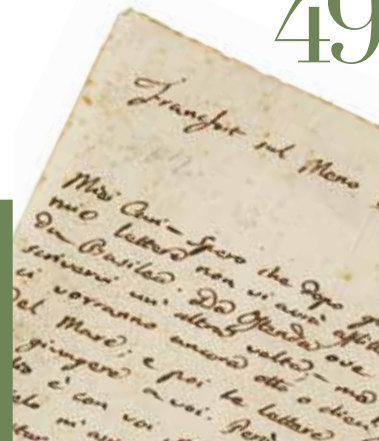 49
Francfort sul Meno
Miei Cari – Spero che dopo
mie lettere non vi avrà
da Basilea. Da Ostenda ove
scrivervi un' altra volta, – ma
ci vorranno ancora otto o dieci
del Mare; e poi le lettere
giungere a voi. Però
è con voi